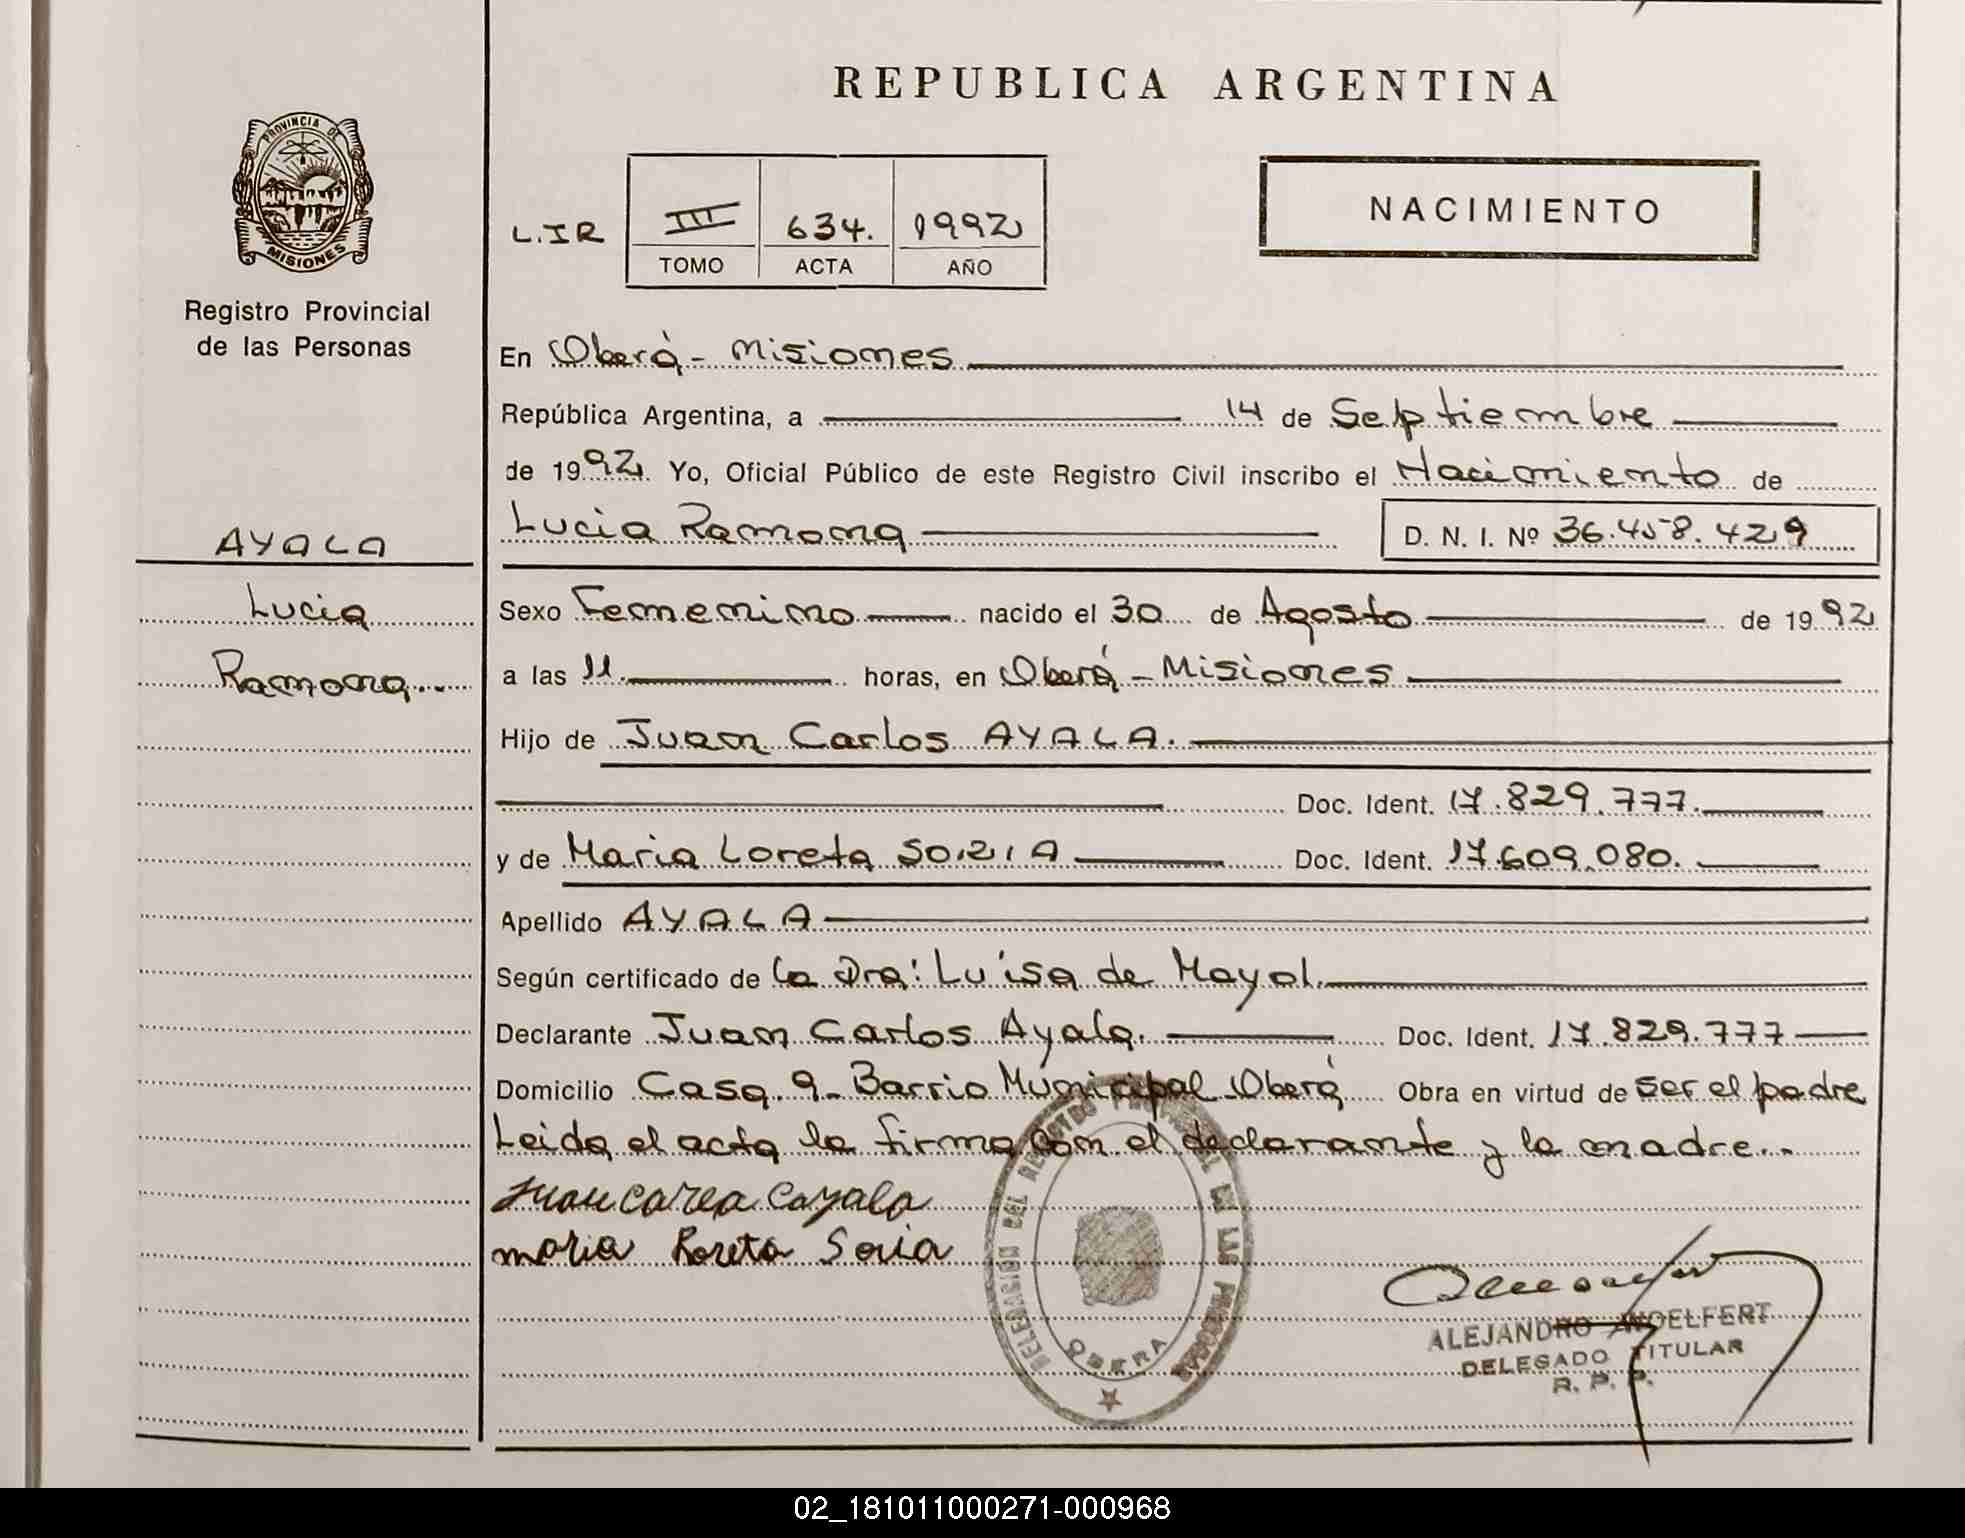 REPUBLICA ARGENTINA
PROVINCIA DE
MISIONES
Registro Provincial
de las Personas
L.I.R III 634. 1992
TOMO ACTA AÑO
NACIMIENTO
En Oberá - Misiones
República Argentina, a 14 de Septiembre
de 1992. Yo, Oficial Público de este Registro Civil inscribo el Nacimiento de
Lucia Ramona D. N. I. Nº 36.458.429
AYALA
Lucia
Ramona..
Sexo Femenino nacido el 30 de Agosto de 1992
a las 11. horas, en Oberá - Misiones
Hijo de Juan Carlos AYALA.
Doc. Ident. 17.829.777.
y de Maria Loreta SORIA Doc. Ident. 17.609.080.
Apellido AYALA
Según certificado de la Dra: Luisa de Mayol.
Declarante Juan Carlos Ayala. Doc. Ident. 17.829.777
Domicilio Casa. 9- Barrio Municipal-Oberá Obra en virtud de ser el padre
Leida el acta la firma con el declarante y la madre..
maria Loreta Soria
DELEGACION DEL REGISTRO PROVINCIAL DE LAS PERSONAS
OBERA
ALEJANDRO WOELFERT
DELEGADO TITULAR
R. P. P.
02_181011000271-000968